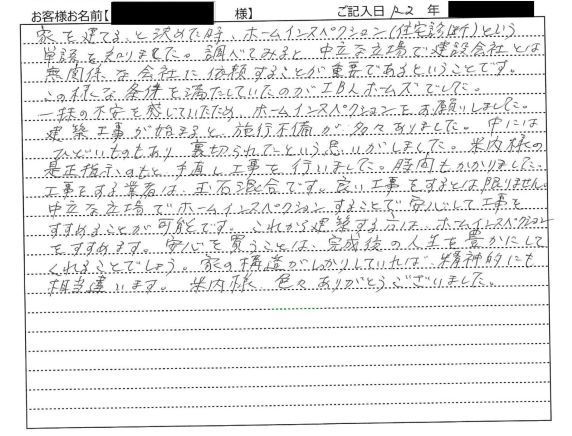 お客様お名前【 様】 ご記入日 R2 年
家を建てる、と決めた時、ホームインスペクション(住宅診断)という
単語を知りました。調べてみると、中立な立場で建設会社とは
無関係な会社に依頼することが重要であるということです。
この様な条件を満たしていたのがIBAホームズでした。
一抹の不安を感じていたため、ホームインスペクションをお願いしました。
建築工事が始まると、施行不備が多々ありました。中には
ひどいものもあり、裏切られたという思いがしました。米内様の
是正指示のもと、手直し工事を行いました。時間もかかりました。
工事をする業者は、玉石混合です。良い工事をするとは限りません。
中立な立場でホームインスペクションすることで安心して工事を
すすめることが可能です。これから建築する方は、ホームインスペクション
をすすめます。安心を買うことは、完成後の人生を豊かにして
くれることでしょう。家の構造がしっかりしていれば、精神的にも
相当違います。米内様、色々ありがとうございました。